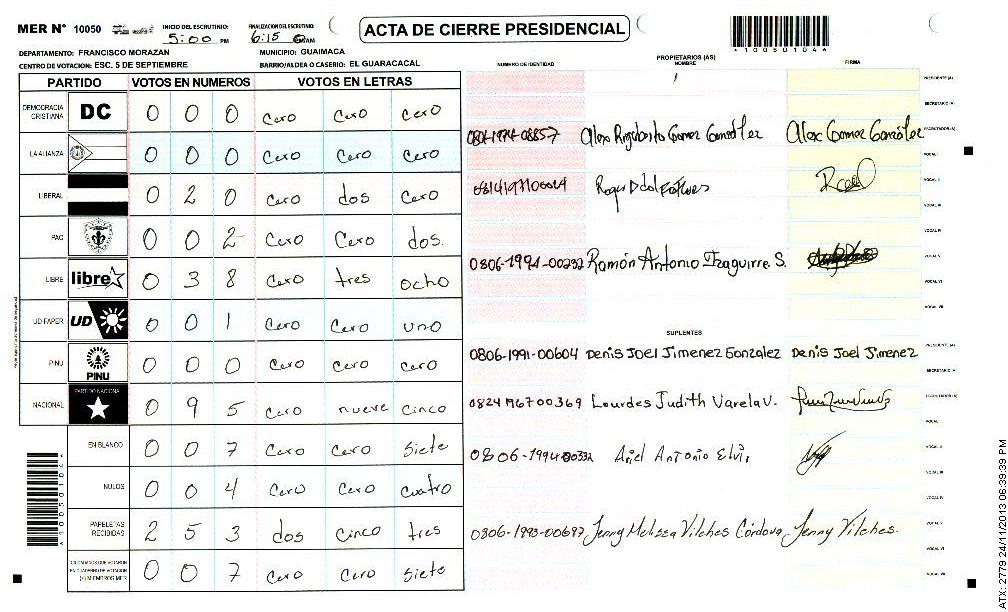 MER N° 10050
INICIO DEL ESCRUTINIO: 5:00 PM
FINALIZACION DEL ESCRUTINIO: 6:15
ACTA DE CIERRE PRESIDENCIAL
*10050104*
DEPARTAMENTO: FRANCISCO MORAZAN
MUNICIPIO: GUAIMACA
CENTRO DE VOTACION: ESC. 5 DE SEPTIEMBRE
BARRIO/ALDEA O CASERIO: EL GUARACACAL
PARTIDO VOTOS EN NUMEROS VOTOS EN LETRAS
DEMOCRACIA CRISTIANA DC 0 0 0 cero cero cero
LA ALIANZA 0 0 0 cero cero cero
LIBERAL 0 2 0 cero dos cero
PAC 0 0 2 cero cero dos.
LIBRE libre 0 3 8 cero tres ocho
UD-FAPER UD 0 0 1 cero cero uno
PINU PINU 0 0 0 cero cero cero
NACIONAL PARTIDO NACIONAL 0 9 5 cero nueve cinco
EN BLANCO 0 0 7 cero cero siete
NULOS 0 0 4 cero cero cuatro
PAPELETAS RECIBIDAS 2 5 3 dos cinco tres
CIUDADANOS QUE VOTARON EN CUADERNO DE VOTACION (+) MIEMBROS MER 0 0 7 cero cero siete
PROPIETARIOS (AS)
NUMERO DE IDENTIDAD NOMBRE FIRMA
PRESIDENTE (A)
SECRETARIO (A)
ESCRUTADOR (A)
Alex Rigoberto Gomez González Alex Gomez González
VOCAL I
VOCAL II
VOCAL III
VOCAL IV
0806-1994-00232 Ramón Antonio Izaguirre S.
VOCAL V
VOCAL VI
VOCAL VII
SUPLENTES
PRESIDENTE (A)
0806-1991-00604 Denis Joel Jimenez Gonzalez Denis Joel Jimenez
SECRETARIO (A)
ESCRUTADOR (A)
Lourdes Judith Varela V.
VOCAL I
VOCAL II
Ariel Antonio
VOCAL III
VOCAL IV
VOCAL V
0806-1993-00697 Jenny Melissa Vilches Córdova Jenny Vilches.
VOCAL VI
VOCAL VII
*10050104*
ATX: 2779 24/11/2013 06:39:39 PM